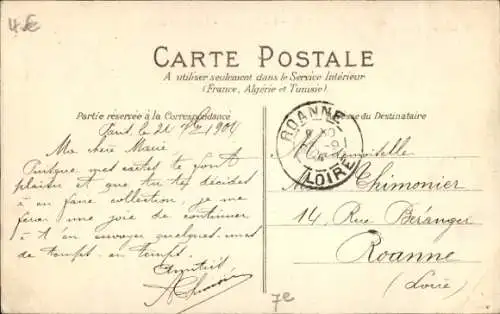 4 €
CARTE POSTALE
A utiliser seulement dans le Service Intérieur
(France, Algérie et Tunisie)
Partie réservée à la Correspondance
Adresse du Destinataire
ROANNE
LOIRE
Paris, le 21 1904
Ma chère Marie
Puisque mes cartes te font
plaisir et que tu te décides
à en faire collection, je me
ferai une joie de continuer
à t'en envoyer quelques-unes
de temps en temps.
Mademoiselle
M. Chimonier
14, Rue Béranger
Roanne
(Loire)
7e